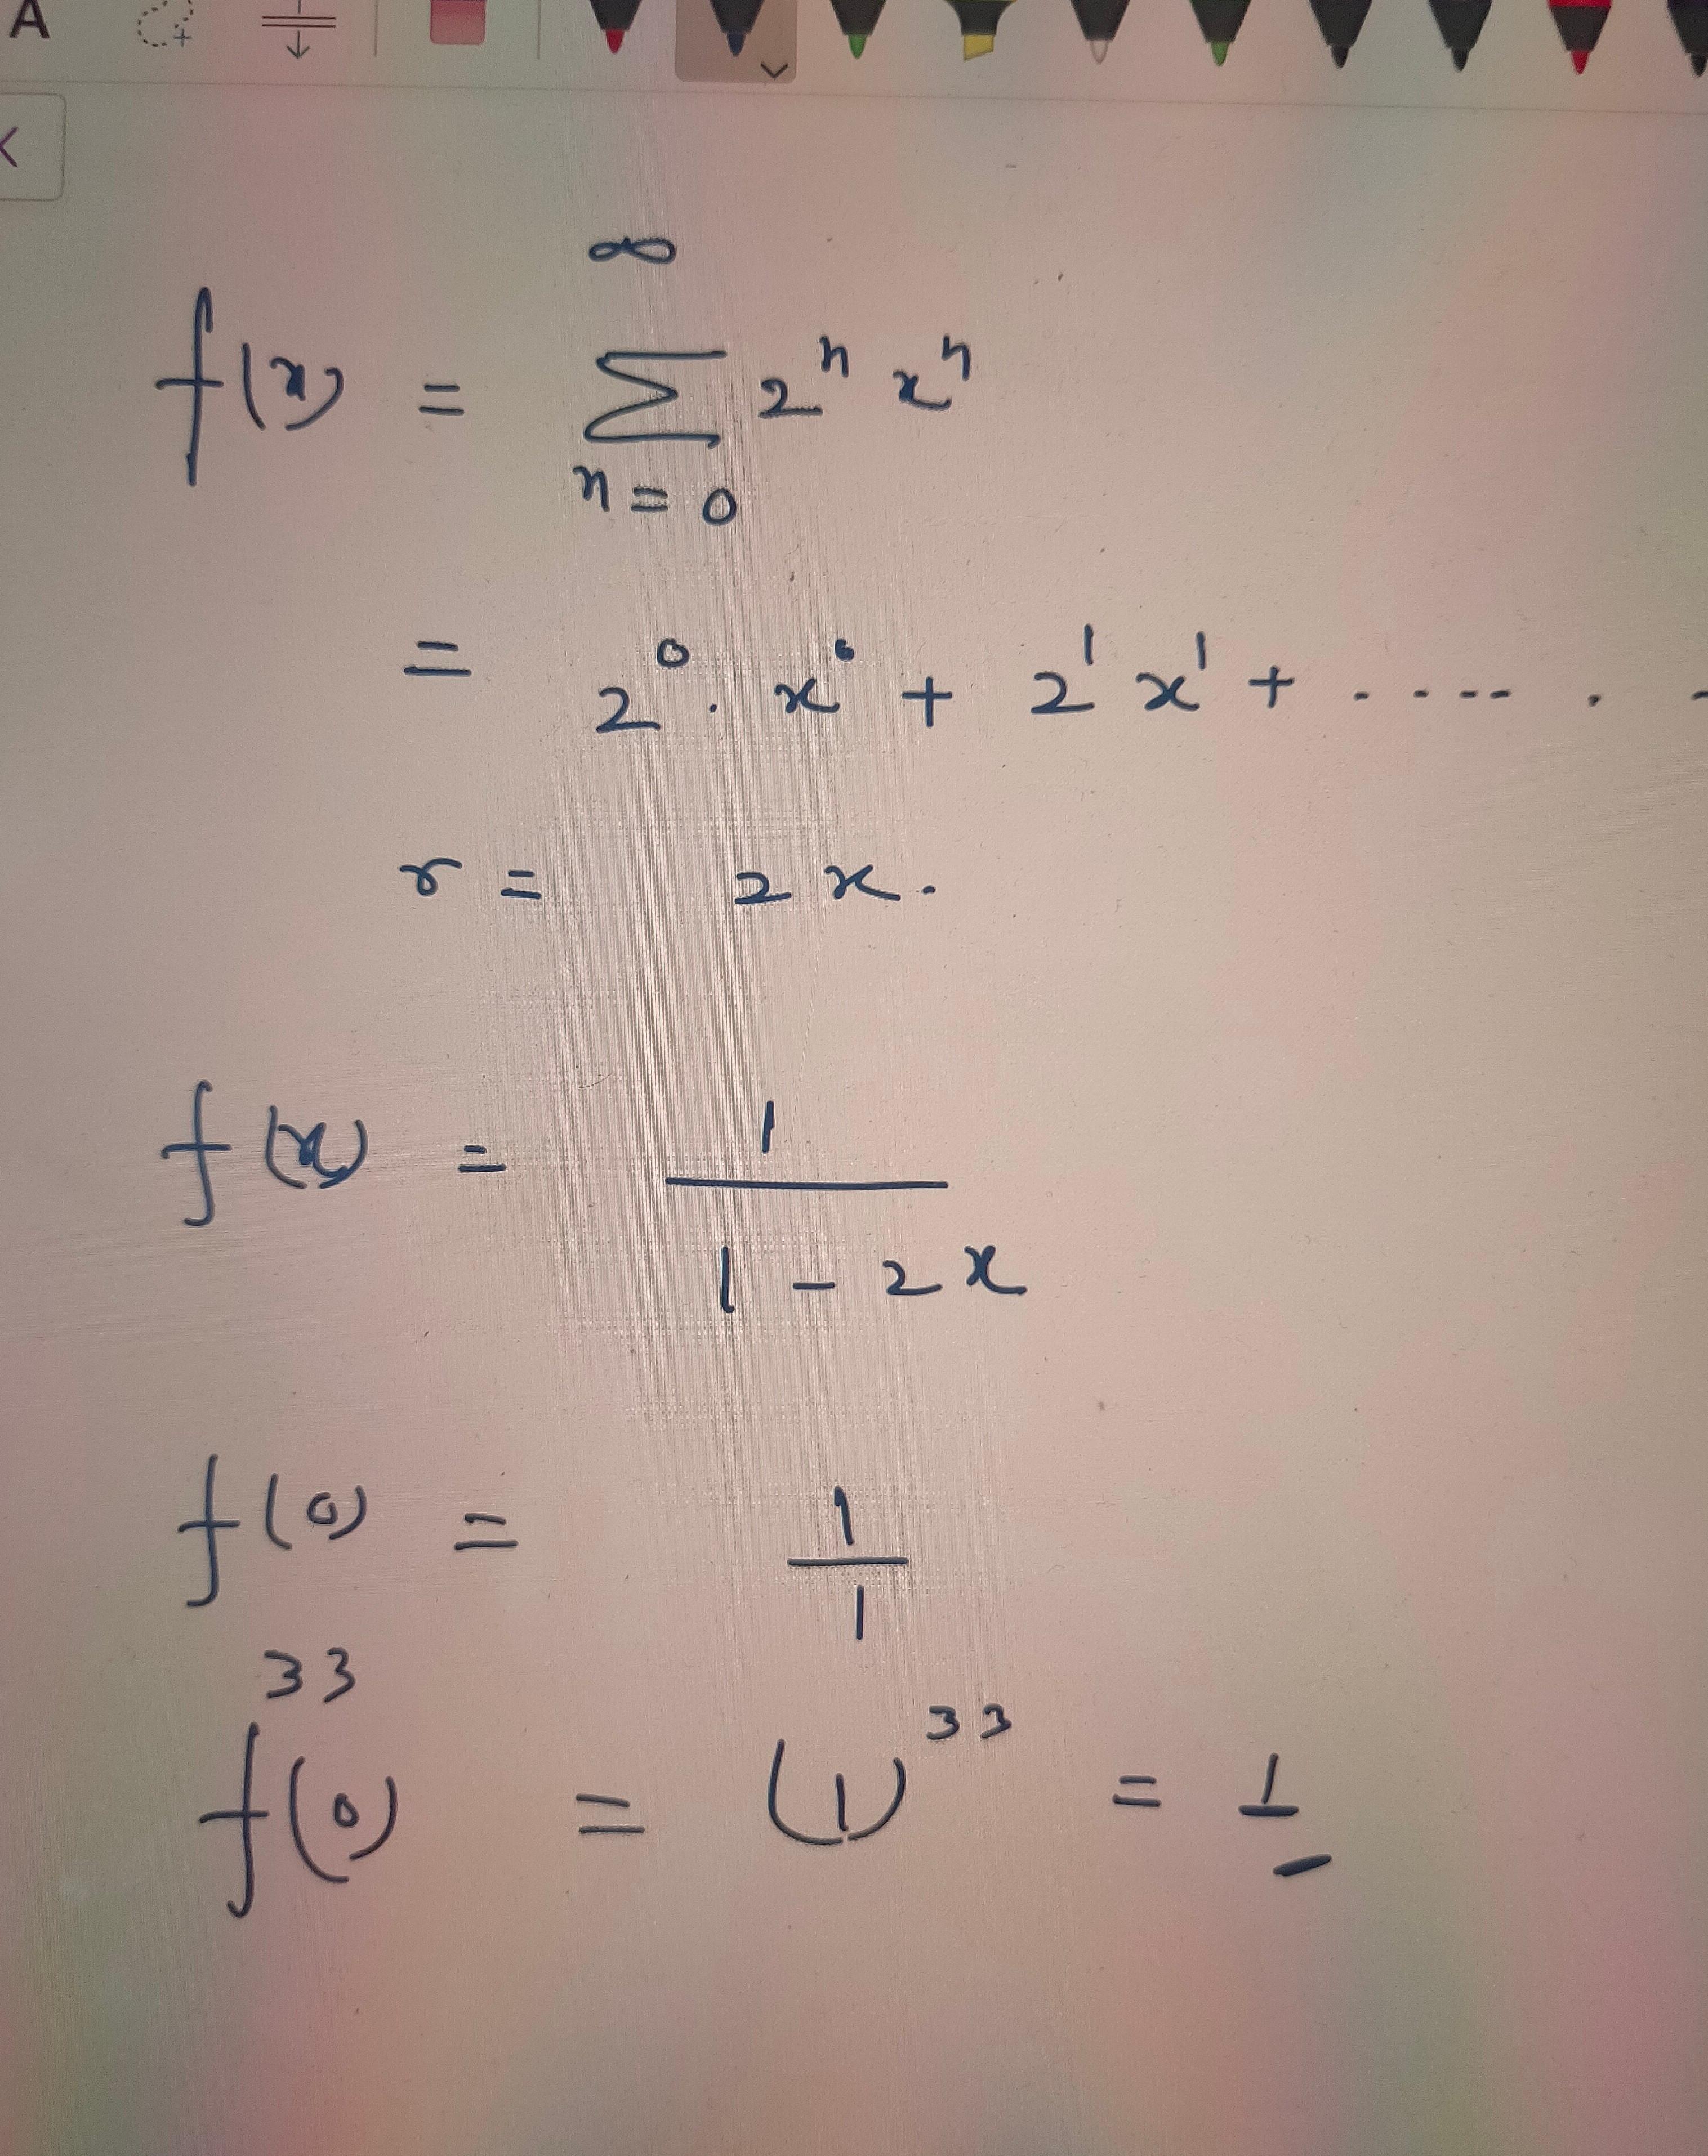 A
∞
f(x) = Σ 2ⁿ xⁿ
n = 0
= 2⁰ . x⁰ + 2¹ x¹ + . . . . . . .
r = 2x.
f(x) = 1
1 - 2x
f(0) = 1
1
33
f(0) = (1)³³ = 1